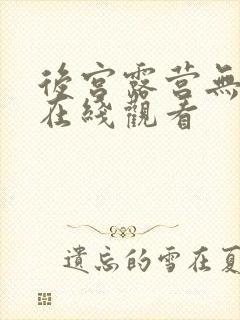 後宮露营無
在綫觀看
遺忘的雪在夏